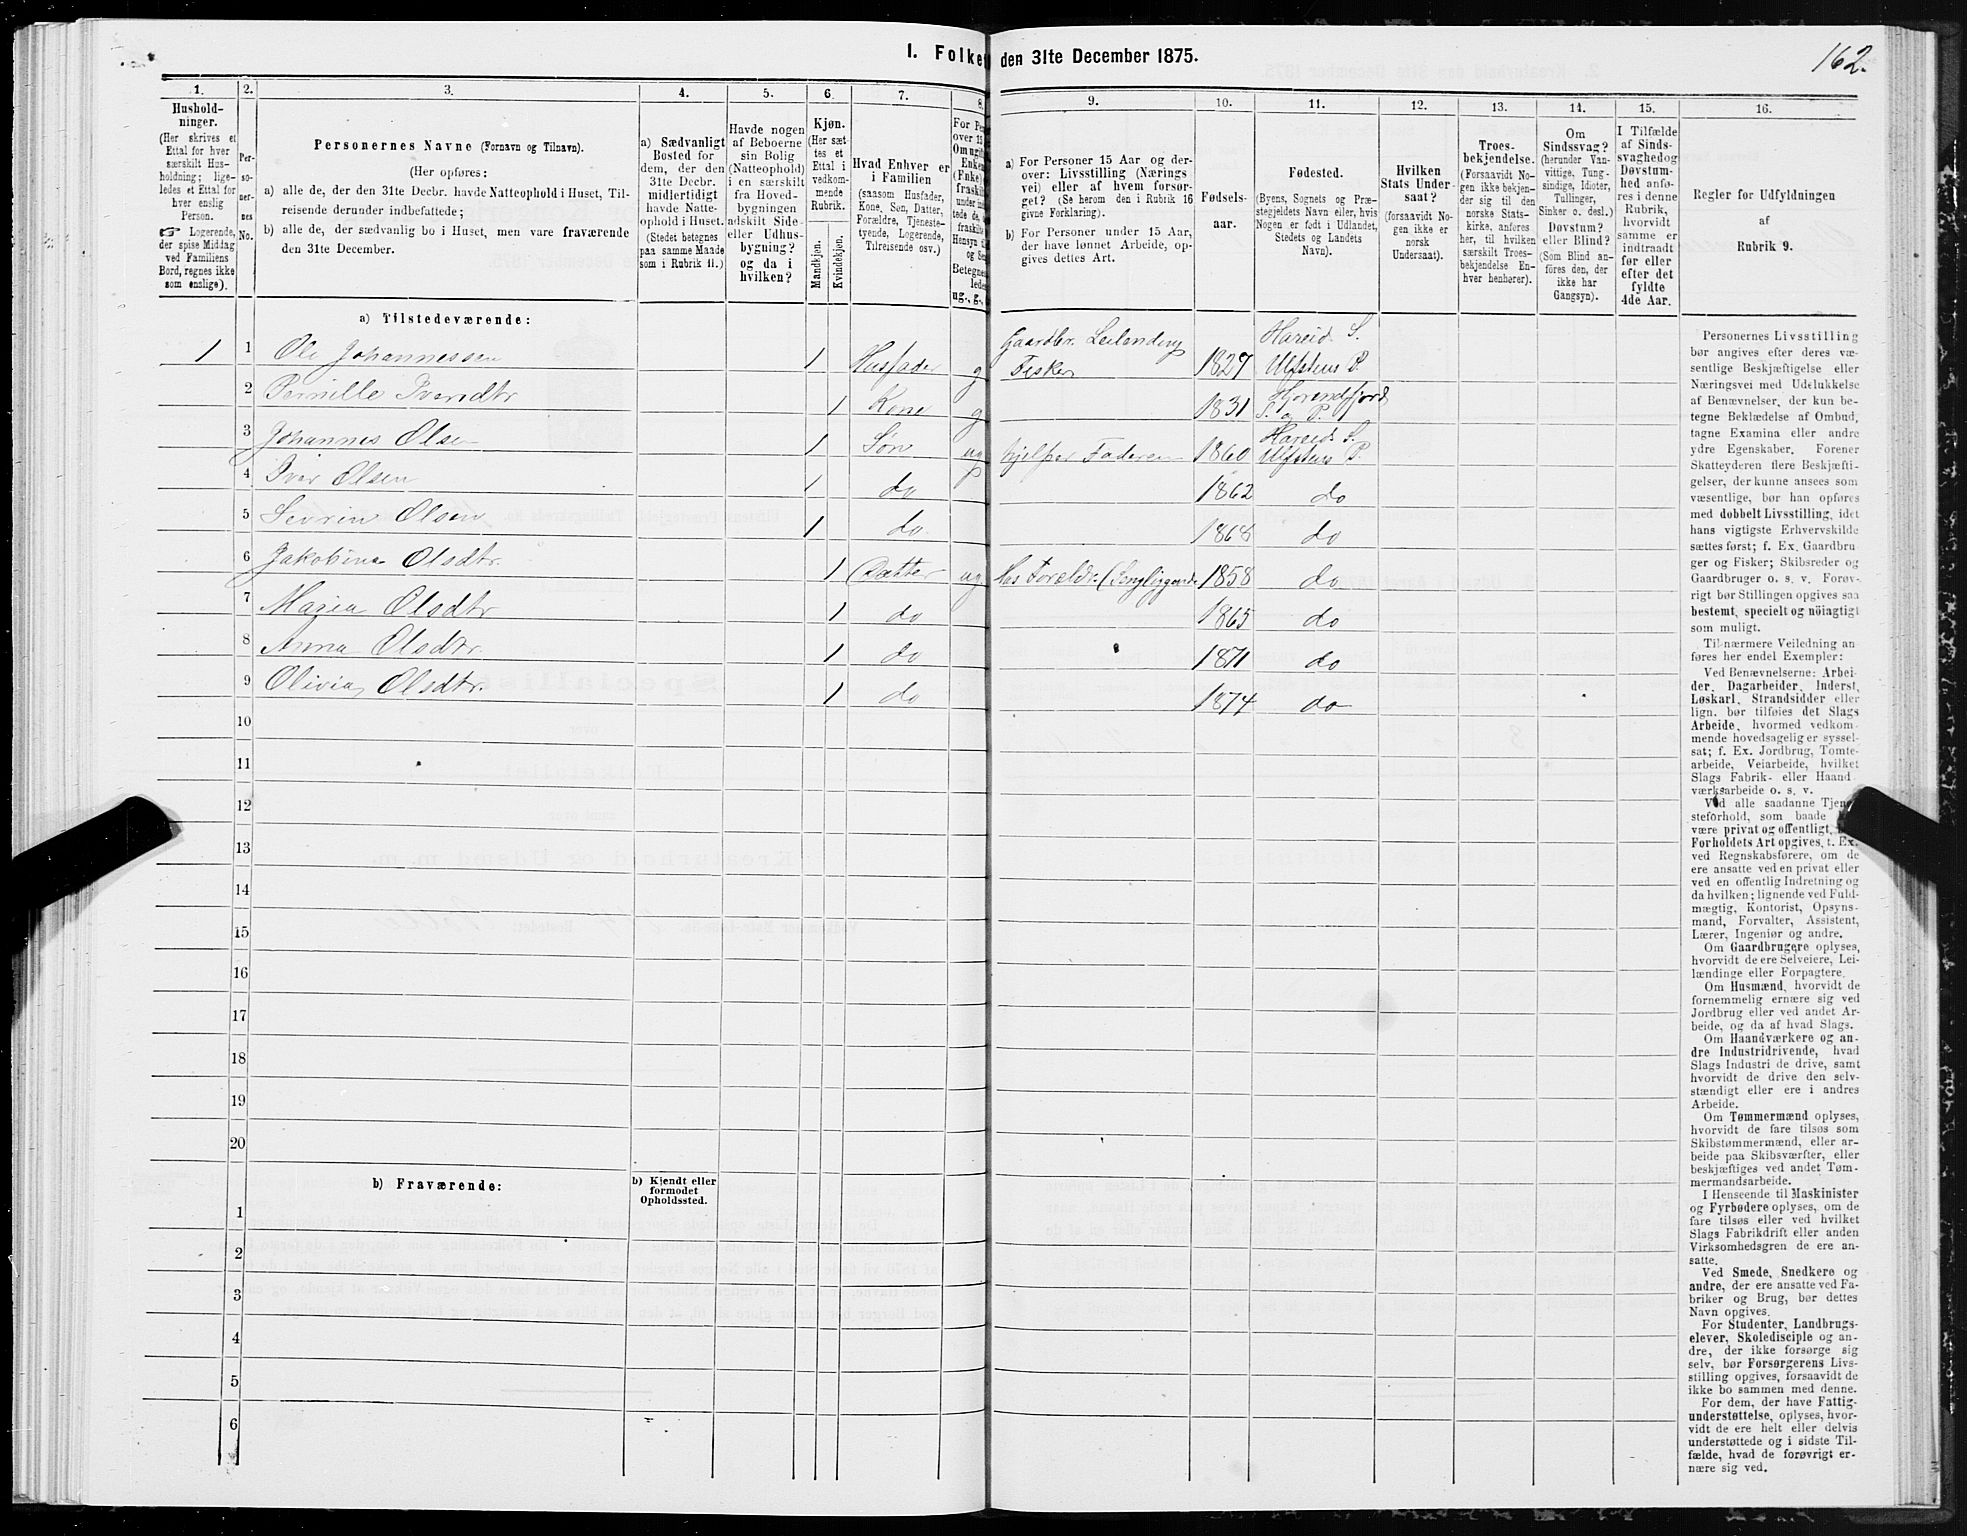 162.
I. Folke den 31te December 1875.
1. 2. 3. 4. 5. 6. 7. 8. 9. 10. 11. 12. 13. 14. 15. 16.
Hushold-
ninger.
(Her skrives et
Ettal for hver
særskilt Hus-
holdning; lige-
ledes et Ettal for
hver enslig
Person.
☞ Logerende,
der spise Middag
ved Familiens
Bord, regnes ikke
som enslige).
Per-
so-
ner-
nes
No.
Personernes Navne (Fornavn og Tilnavn).
(Her opføres:
a) alle de, der den 31te Decbr. havde Natteophold i Huset, Til-
reisende derunder indbefattede;
b) alle de, der sædvanlig bo i Huset, men vare fraværende
den 31te December.
a) Sædvanligt
Bosted for
dem, der den
31te Decbr.
midlertidigt
havde Natte-
ophold i Huset.
(Stedet betegnes
paa samme Maade
som i Rubrik 11.)
Havde nogen
af Beboerne
sin Bolig
(Natteophold)
i en særskilt
fra Hoved-
bygningen
adskilt Side-
eller Udhus-
bygning?
og da i
hvilken?
Kjøn.
(Her sæt-
tes et
Ettal i
vedkom-
mende
Rubrik.
Mandkjøn.
Kvindekjøn.
Hvad Enhver er
i Familien
(saasom Husfader,
Kone, Søn, Datter,
Forældre, Tjeneste-
tyende, Logerende,
Tilreisende osv.)
a) For Personer 15 Aar og der-
over: Livsstilling (Nærings
vei) eller af hvem forsør-
get? (Se herom den i Rubrik 16
givne Forklaring).
b) For Personer under 15 Aar,
der have lønnet Arbeide, op-
gives dettes Art.
Fødsels-
aar.
Fødested.
(Byens, Sognets og Præ-
stegjeldets Navn eller, hvis
Nogen er født i Udlandet,
Stedets og Landets
Navn).
Hvilken
Stats Under-
saat?
(forsaavidt No-
gen ikke er
norsk
Undersaat).
Troes-
bekjendelse.
(Forsaavidt No-
gen ikke bekjen-
der sig til den
norske Stats-
kirke, anføres
her, til hvilken
særskilt Troes-
bekjendelse En-
hver henhører).
Om
Sindssvag?
(herunder Van-
vittige, Tung-
sindige, Idioter,
Tullinger,
Sinker o. desl.)
Døvstum?
eller Blind?
(Som Blind an-
føres den, der
ikke har
Gangsyn).
I Tilfælde
af Sinds-
svaghedog
Døvstum-
hed anfø-
res i denne
Rubrik,
hvorvidt
samme er
indtraadt
før eller
efter det
fyldte
4de Aar.
Regler for Udfyldningen
af
Rubrik 9.
a) Tilstedeværende:
1 1 Ole Johannessen 1 Husfader g Gaardbr. Leilending Fisker 1827 Hareid S. Ulfsteens P.
2 Pernille Iversdtr 1 Kone g 1831 Hjorendfjord S. og P.
3 Johannes Olsen 1 Søn ug hjelper Faderen 1860 Hareid S. Ulfstens P.
4 Iver Olsen 1 do 1862 do
5 Sevrin Olsen 1 do. 1868 do
6 Jakobine Olsdtr. 1 Datter ug. Hos Foreldr. (Sengliggende 1858 do
7 Maria Olsdtr 1 do 1865 do
8 Anna Olsdtr. 1 do 1871 do
9 Olivia Olsdtr. 1 do 1874 do
10
11
12
13
14
15
16
17
18
19
20
b) Fraværende:
b) Kjendt eller
formodet
Opholdssted.
1
2
3
4
5
6
Personernes Livsstilling
bør angives efter deres væ-
sentlige Beskjæftigelse eller
Næringsvei med Udelukkelse
af Benævnelser, der kun be-
tegne Beklædelse af Ombud,
tagne Examina eller andre
ydre Egenskaber. Forener
Skatteyderen flere Beskjæfti-
gelser, der kunne ansees som
væsentlige, bør han opføres
med dobbelt Livsstilling, idet
hans vigtigste Erhvervskilde
sættes først; f. Ex. Gaardbru
ger og Fisker; Skibsreder og
Gaardbruger o. s. v. Forøv-
rigt bør Stillingen opgives saa
bestemt, specielt og nöiagtigt
som muligt.
Til nærmere Veiledning an
føres her endel Exempler:
Ved Benævnelserne: Arbei-
der, Dagarbeider, Inderst,
Løskarl, Strandsidder eller
lign. bør tilføies det Slags
Arbeide, hvormed vedkom-
mende hovedsagelig er syssel-
sat; f. Ex. Jordbrug, Tomte-
arbeide, Veiarbeide, hvilket
Slags Fabrik- eller Haand
værksarbeide o. s. v.
Ved alle saadanne Tjene-
steforhold, som baade
være privat og offentligt,
Forholdets Art opgives, t. Ex.
ved Regnskabsførere, om de
ere ansatte ved en privat eller
ved en offentlig Indretning og
da hvilken; lignende ved Fuld-
mægtig, Kontorist, Opsyns-
mand, Forvalter, Assistent,
Lærer, Ingeniør og andre.
Om Gaardbrugere oplyses,
hvorvidt de ere Selveiere, Lei-
lændinge eller Forpagtere.
Om Husmænd, hvorvidt de
fornemmelig ernære sig ved
Jordbrug eller ved andet Ar-
beide, og da af hvad Slags.
Om Haandværkere og an-
dre Industridrivende, hvad
Slags Industri de drive, samt
hvorvidt de drive den selv-
stændigt eller ere i andres
Arbeide.
Om Tømmermænd oplyses,
hvorvidt de fare tilsøs som
Skibstømmermænd, eller ar-
beide paa Skibsværfter, eller
beskjæftiges ved andet Tøm-
mermandsarbeide.
I Henseende til Maskinister
og Fyrbødere oplyses, om de
fare tilsøs eller ved hvilket
Slags Fabrikdrift eller anden
Virksomhedsgren de ere an-
satte.
Ved Smede, Snedkere og
andre, der ere ansatte ved Fa-
briker og Brug, bør dettes
Navn opgives.
For Studenter, Landbrugs-
elever, Skoledisciple og an-
dre, der ikke forsørge sig
selv, bør Forsørgerens Livs-
stilling opgives, forsaavidt de
ikke bo sammen med denne.
For dem, der have Fattig-
understøttelse, oplyses, hvor-
vidt de ere helt eller delvis
understøttede og i sidste Til-
fælde, hvad de forøvrigt er-
nære sig ved.